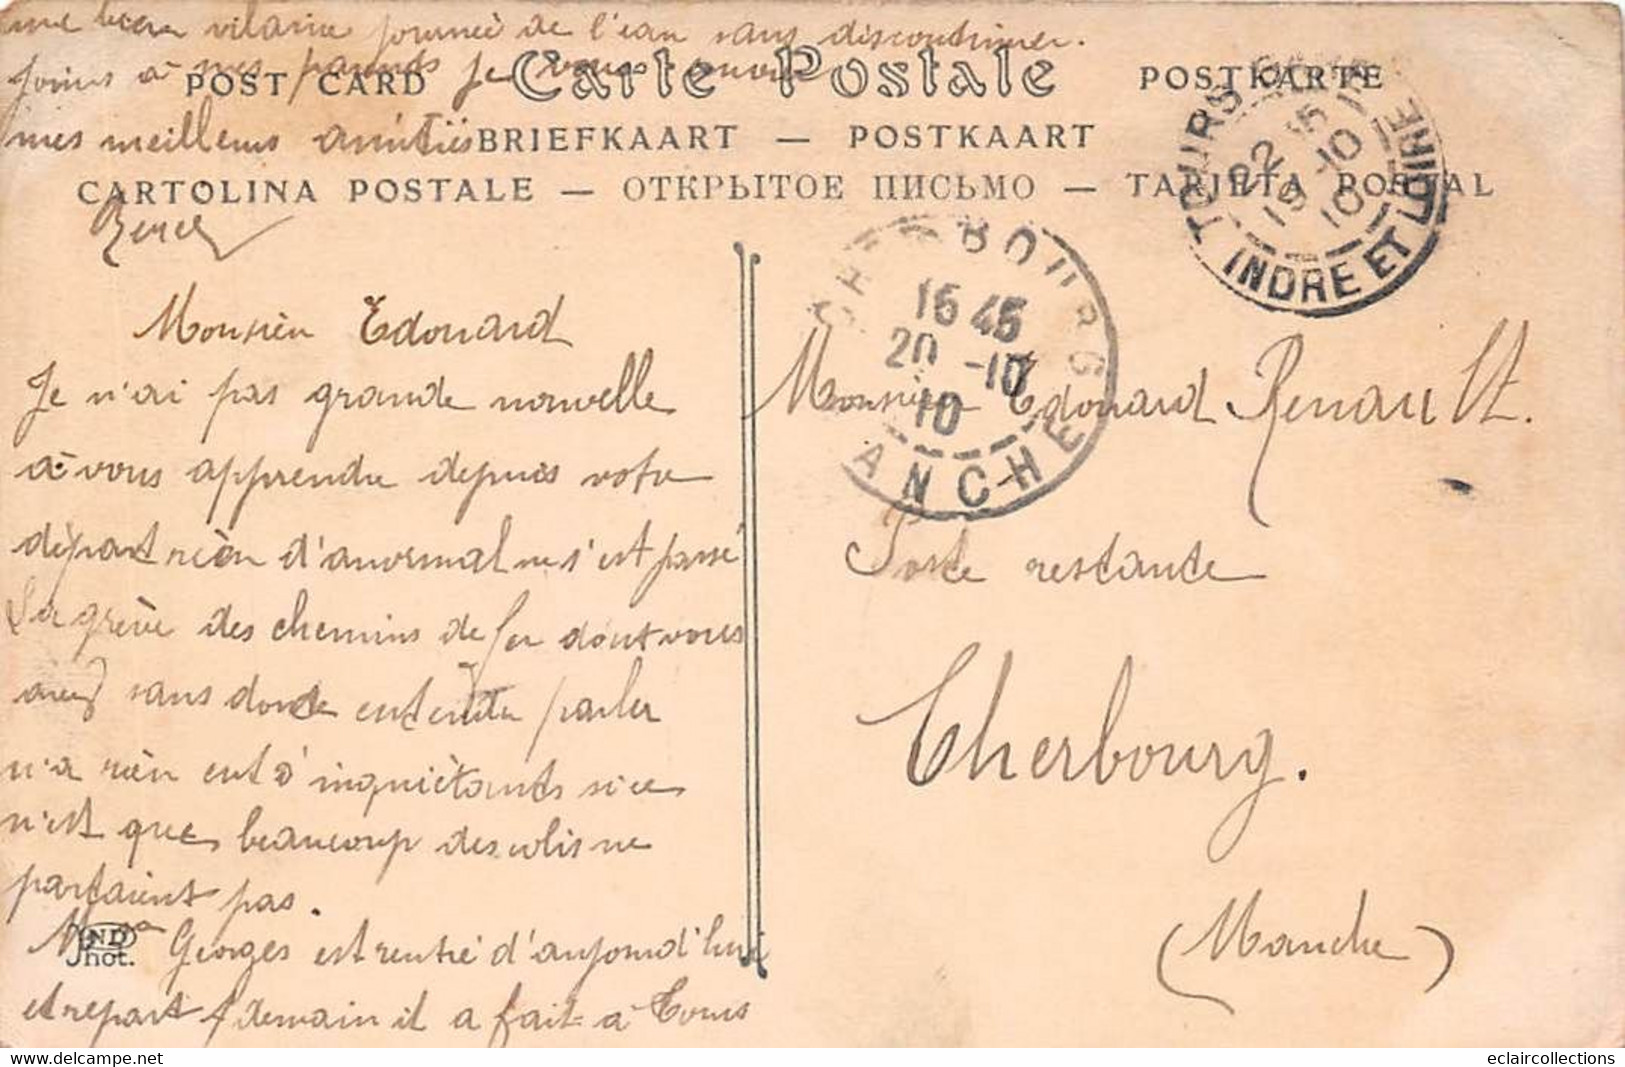 une bien vilaine journée de l'eau sans discontinuer.
Joins à mes parents je vous envoie
mes meilleurs amitiés
POST CARD Carte Postale POSTKARTE
BRIEFKAART — POSTKAART
CARTOLINA POSTALE — ОТКРЫТОЕ ПИСЬМО — TARJETA POSTAL
TOURS
22 15
19 -10
10
INDRE ET LOIRE
CHERBOURG
16 45
20 -10
10
MANCHE
Monsieu Edouard
Je n'ai pas grande nouvelle
à vous apprendre depuis votre
départ rièn d'anormal ne s'est passé
La grève des chemins de fer dont vous
avez sans doute entendu parler
n'a rièn eut d'inquiètants si ce
n'est que beaucoup des colis ne
partaient pas.
Georges est rentré d'aujourd'hui
et repart demain il a fait à Tours
ND
Phot.
Monsieur Edouard Renault.
Poste restante
Cherbourg.
(Manche)
eclaircollections